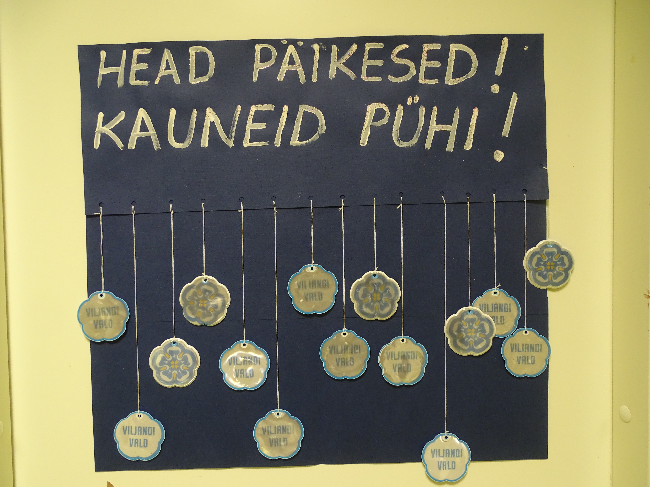 HEAD PÄIKESED!
KAUNEID PÜHI!
VILJANDI
VALD
VILJANDI
VALD
VILJANDI
VALD
VILJANDI
VALD
VILJANDI
VALD
VILJANDI
VALD
VILJANDI
VALD
VILJANDI
VALD
VILJANDI
VALD
VILJANDI
VALD